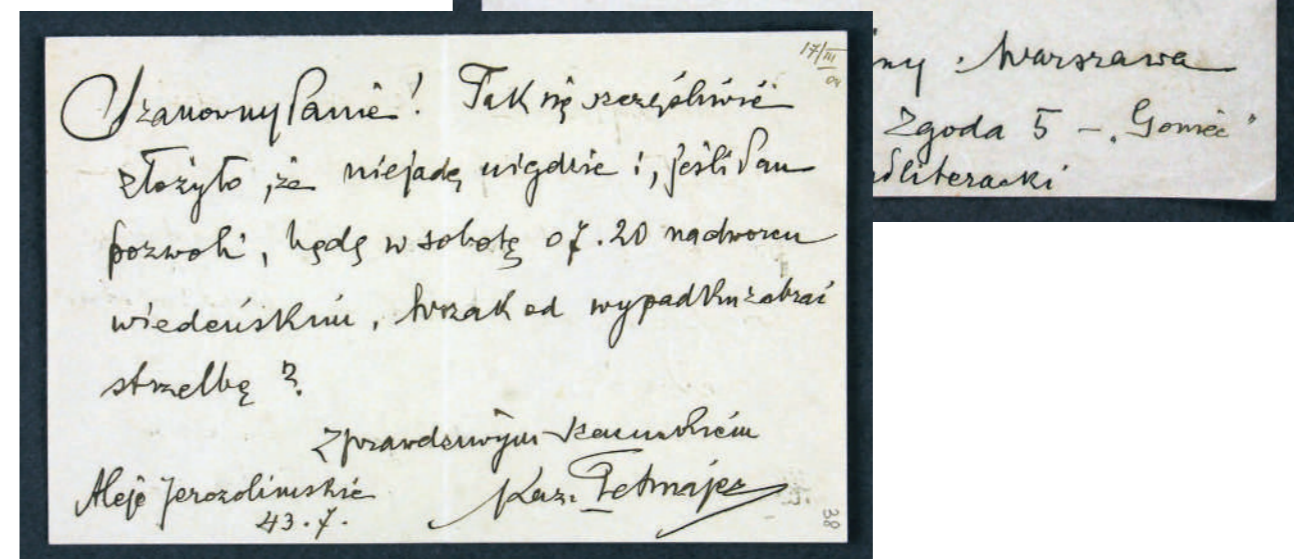 17/III
04
Szanowny Panie! Tak się szczęśliwie
złożyło, że niejadę nigdzie i, jeśli Pan
pozwoli, będę w sobotę o 7.20 nadworcu
wiedeńskim, wszak od wypadku zabrać
strzelbę?
Z prawdziwym szacunkiem
Kaz. Tetmajer
Aleje Jerozolimskie
43.7.
38
ny. Warszawa
Zgoda 5 – "Goniec"
literacki